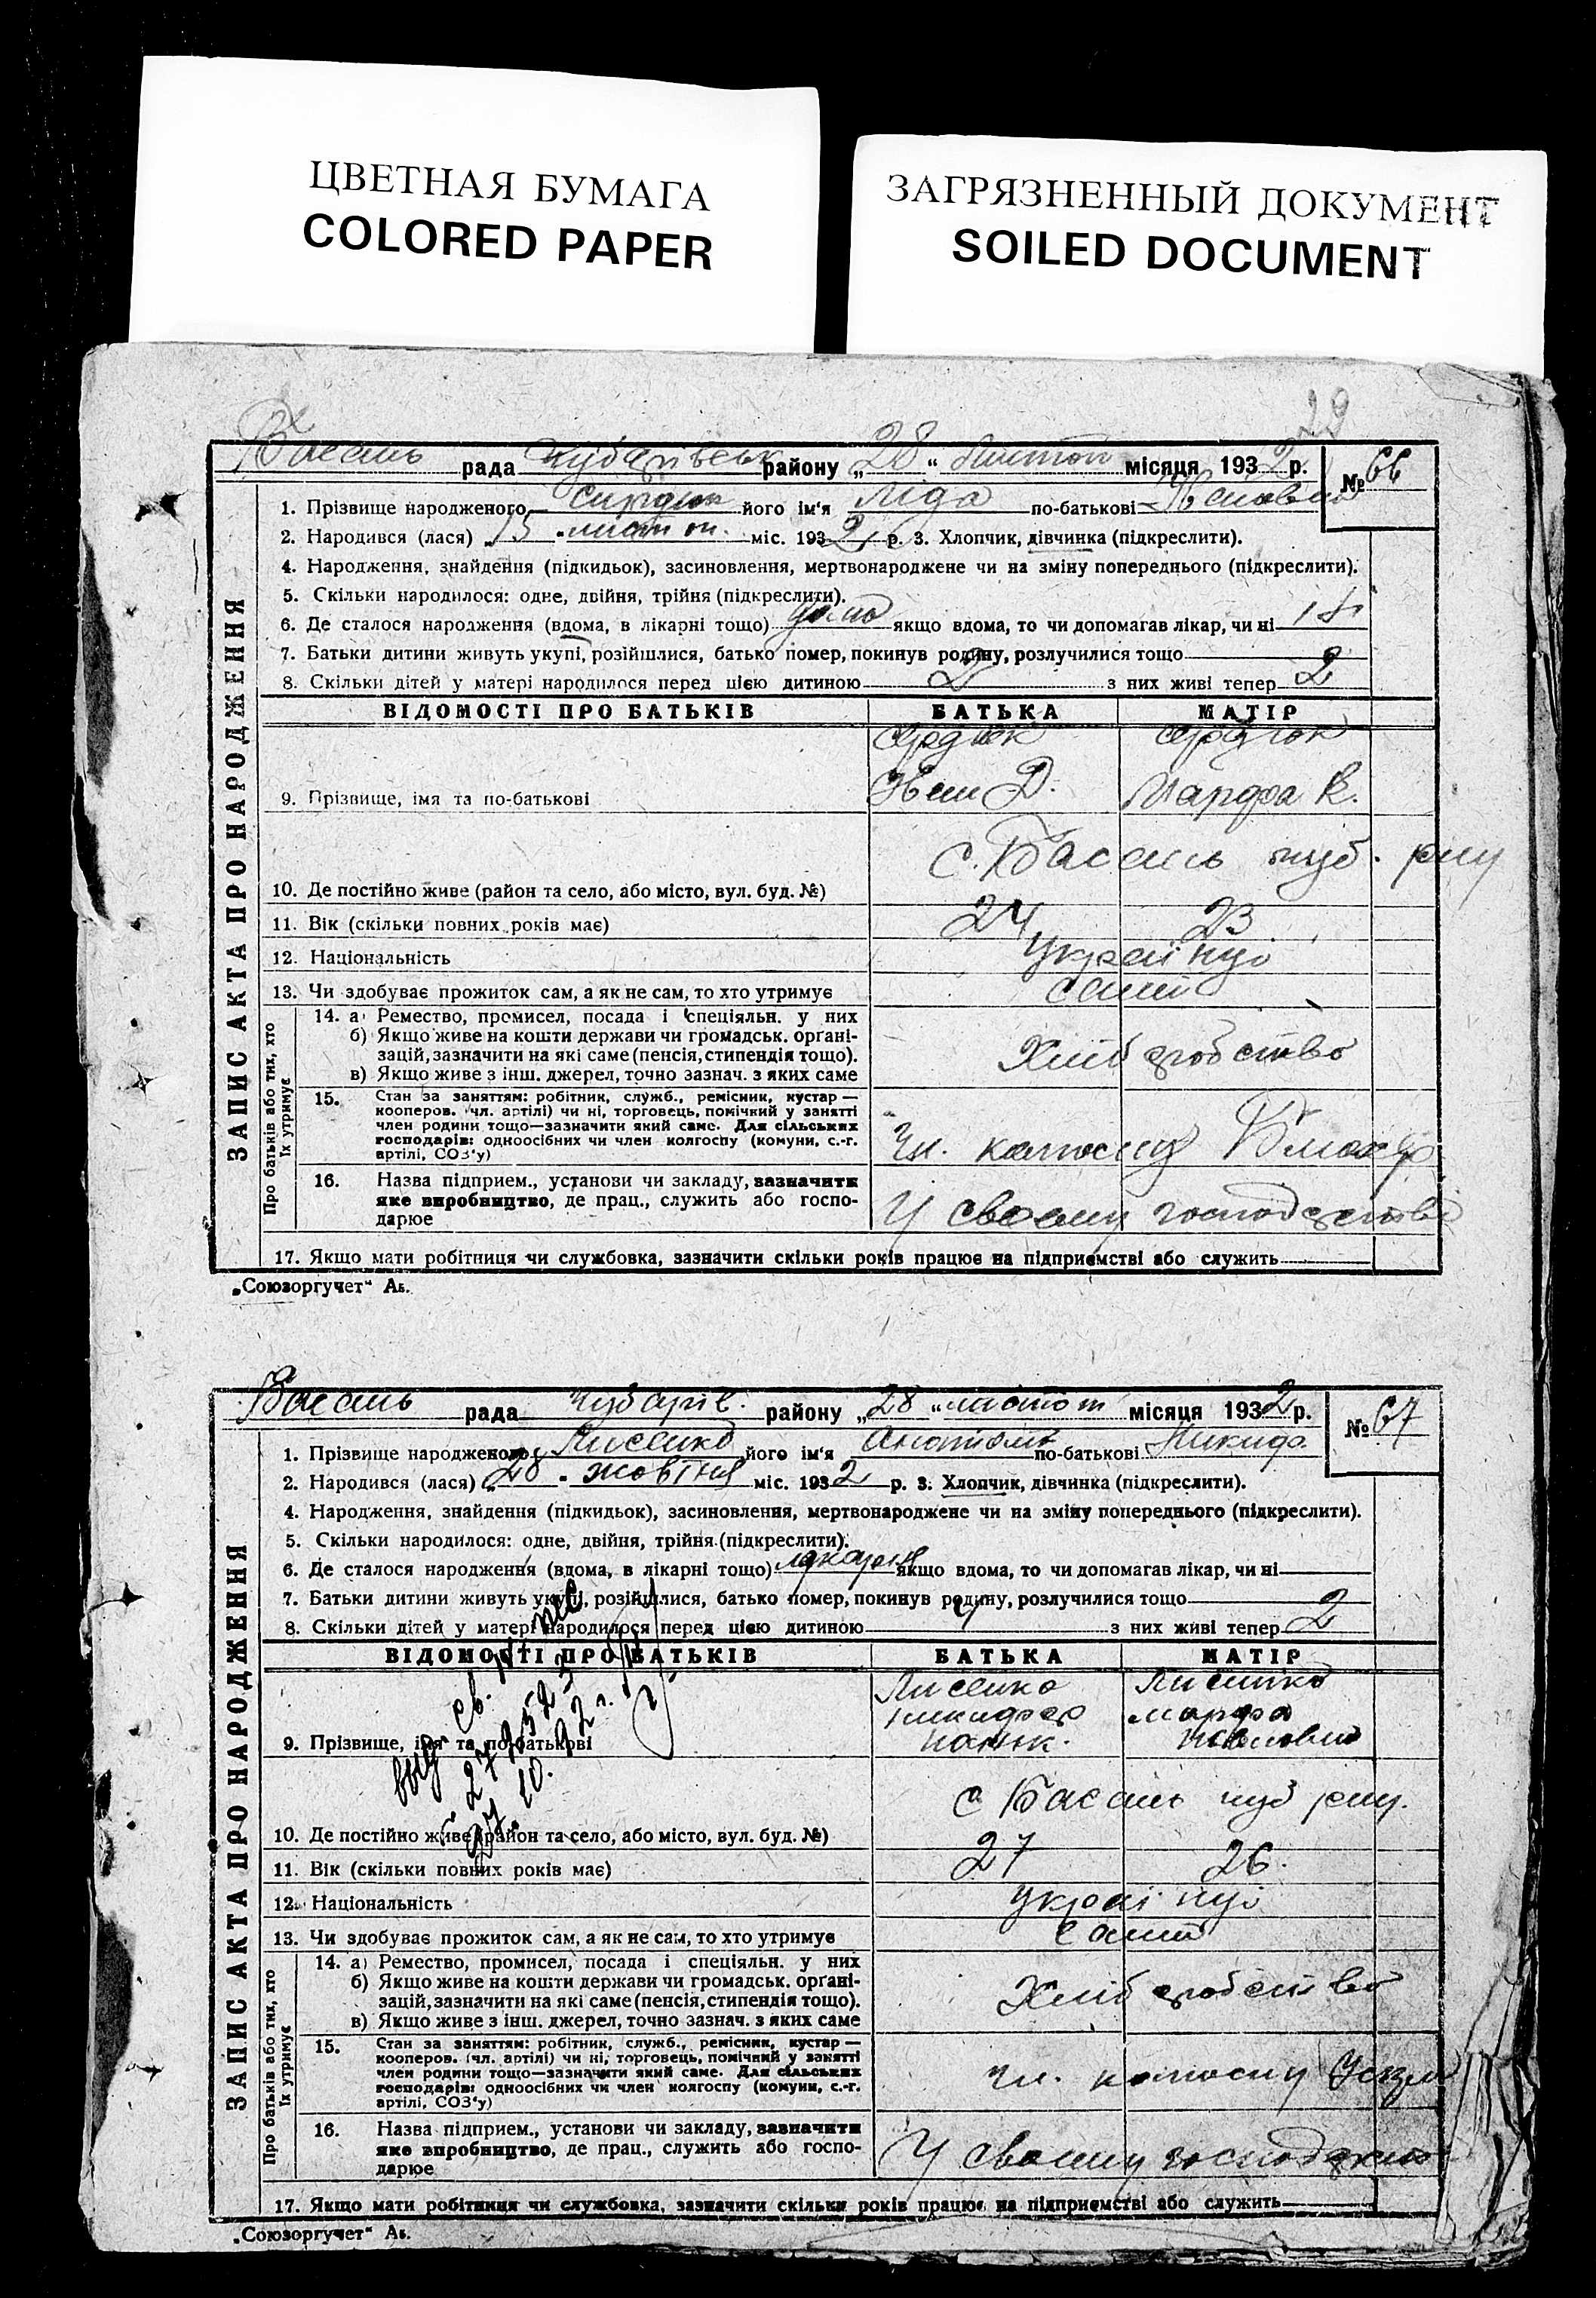 ЦВЕТНАЯ БУМАГА
COLORED PAPER
ЗАГРЯЗНЕННЫЙ ДОКУМЕНТ
SOILED DOCUMENT
29
Басань рада Чубарівськ району „28“ Листоп місяця 1932 р. № 66
ЗАПИС АКТА ПРО НАРОДЖЕННЯ
1. Прізвище народженого його ім'я Ліда по-батькові
2. Народився (лася) 15 листоп. міс. 1932 р. 3. Хлопчик, дівчинка (підкреслити).
4. Народження, знайдення (підкидьок), засиновлення, мертвонароджене чи на зміну попереднього (підкреслити).
5. Скільки народилося: одне, двійня, трійня (підкреслити).
6. Де сталося народження (вдома, в лікарні тощо) якщо вдома, то чи допомагав лікар, чи ні
7. Батьки дитини живуть укупі, розійшлися, батько помер, покинув родину, розлучилися тощо
8. Скільки дітей у матері народилося перед цією дитиною 2 з них живі тепер 2
ВІДОМОСТІ ПРО БАТЬКІВ БАТЬКА МАТІР
Сердюк Сердюк
9. Прізвище, імя та по-батькові Д. Марфа К.
10. Де постійно живе (район та село, або місто, вул. буд. №) с. Басань чуб. р-ну
11. Вік (скільки повних років має) 24 23
12. Національність Українці
13. Чи здобуває прожиток сам, а як не сам, то хто утримує сами
Про батьків або тих, хто їх утримує
14. а) Ремество, промисел, посада і спеціяльн. у них
б) Якщо живе на кошти держави чи громадськ. органі-
зацій, зазначити на які саме (пенсія, стипендія тощо).
в) Якщо живе з інш. джерел, точно зазнач. з яких саме
Хліборобство
15. Стан за заняттям: робітник, служб., ремісник, кустар —
кооперов. (чл. артілі) чи ні, торговець, помічний у занятті
член родини тощо—зазначити який саме. Для сільських
господарів: одноосібних чи член колгоспу (комуни, с.-г.
артілі, СОЗ'у)
Чл. колгоспу
16. Назва підприєм., установи чи закладу, зазначити
яке виробництво, де прац., служить або госпо-
дарює
У своєму господарстві
17. Якщо мати робітниця чи службовка, зазначити скільки років працює на підприємстві або служить
„Союзоргучет“ Ав.
Басань рада Чубарів. району „28“ листоп місяця 1932 р. № 67
ЗАПИС АКТА ПРО НАРОДЖЕННЯ
1. Прізвище народженого Лисенко його ім'я Анатоль по-батькові Никифо.
2. Народився (лася) 28 жовтня міс. 1932 р. 3. Хлопчик, дівчинка (підкреслити).
4. Народження, знайдення (підкидьок), засиновлення, мертвонароджене чи на зміну попереднього (підкреслити).
5. Скільки народилося: одне, двійня, трійня (підкреслити).
6. Де сталося народження (вдома, в лікарні тощо) лікарня якщо вдома, то чи допомагав лікар, чи ні
7. Батьки дитини живуть укупі, розійшлися, батько помер, покинув родину, розлучилися тощо
8. Скільки дітей у матері народилося перед цією дитиною з них живі тепер 2
ВІДОМОСТІ ПРО БАТЬКІВ БАТЬКА МАТІР
Лисенко Лисенко
Никифор Марфа
9. Прізвище, імя та по-батькові
10. Де постійно живе (район та село, або місто, вул. буд. №) с Басань чуб р-ну.
11. Вік (скільки повних років має) 27 26.
12. Національність Українці
13. Чи здобуває прожиток сам, а як не сам, то хто утримує сами
Про батьків або тих, хто їх утримує
14. а) Ремество, промисел, посада і спеціяльн. у них
б) Якщо живе на кошти держави чи громадськ. органі-
зацій, зазначити на які саме (пенсія, стипендія тощо).
в) Якщо живе з інш. джерел, точно зазнач. з яких саме
Хліборобство
15. Стан за заняттям: робітник, служб., ремісник, кустар —
кооперов. (чл. артілі) чи ні, торговець, помічний у занятті
член родини тощо—зазначити який саме. Для сільських
господарів: одноосібних чи член колгоспу (комуни, с.-г.
артілі, СОЗ'у)
чл. колгоспу
16. Назва підприєм., установи чи закладу, зазначити
яке виробництво, де прац., служить або госпо-
дарює
У своєму
17. Якщо мати робітниця чи службовка, зазначити скільки років працює на підприємстві або служить
„Союзоргучет“ Ав.